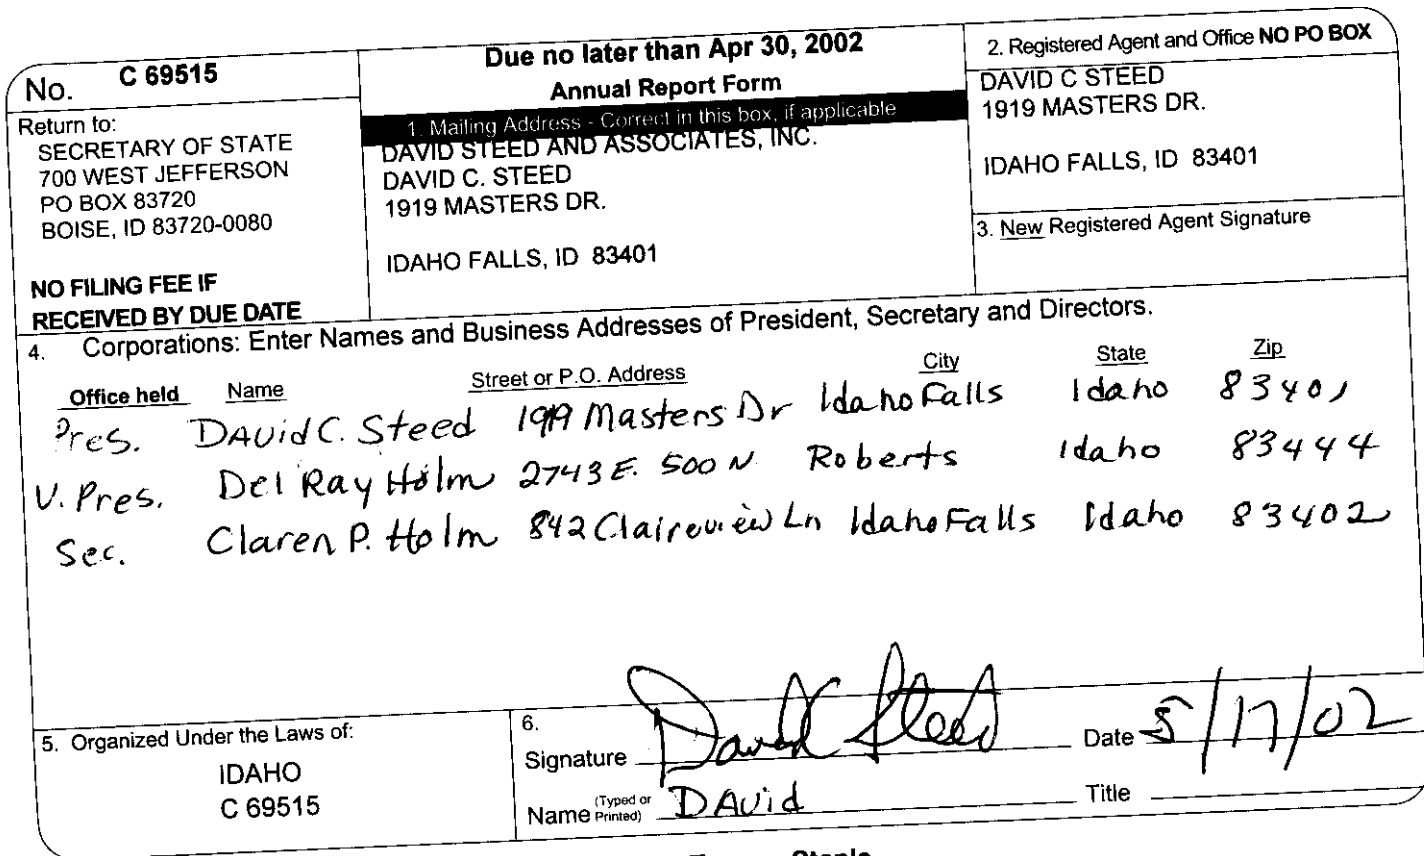 No. C 69515
Return to:
SECRETARY OF STATE
700 WEST JEFFERSON
PO BOX 83720
BOISE, ID 83720-0080
NO FILING FEE IF
RECEIVED BY DUE DATE
Due no later than Apr 30, 2002
Annual Report Form
1. Mailing Address - Correct in this box, if applicable
DAVID STEED AND ASSOCIATES, INC.
DAVID C. STEED
1919 MASTERS DR.
IDAHO FALLS, ID 83401
2. Registered Agent and Office NO PO BOX
DAVID C STEED
1919 MASTERS DR.
IDAHO FALLS, ID 83401
3. New Registered Agent Signature
4. Corporations: Enter Names and Business Addresses of President, Secretary and Directors.
Office held Name Street or P.O. Address City State Zip
Pres. DAVid C. Steed 1919 Masters Dr Idaho Falls Idaho 83401
V. Pres. Del Ray Holm 2743 E. 500 N Roberts Idaho 83444
Sec. Claren P. Holm 842 Claireview Ln Idaho Falls Idaho 83402
5. Organized Under the Laws of:
IDAHO
C 69515
6.
Signature David C Steed Date 5/17/02
Name (Typed or Printed) DAVid Title